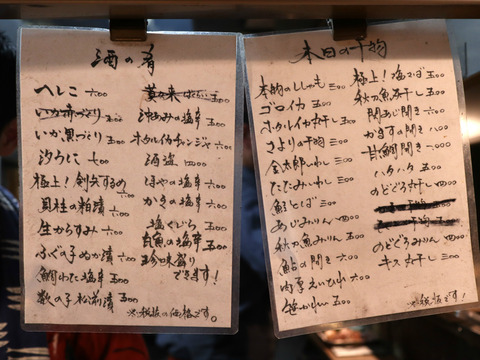 酒の肴
へしこ 六〇〇
いか赤づくり 五〇〇
いか黒づくり 五〇〇
汐うに 七〇〇
極上!剣先するめ 六〇〇
貝柱の粕漬 六〇〇
生からすみ 六〇〇
ふぐの子ぬか漬 六〇〇
鯛わた塩辛 五〇〇
数の子松前漬 五〇〇
五〇〇
の塩辛 五〇〇
ホタルイカチャンジャ 六〇〇
酒盗 四〇〇
ほやの塩辛 六〇〇
かきの塩辛 六〇〇
塩くじら
白魚の塩辛 五〇〇
珍味盛り
できます!
※税抜の価格です。
本日の干物
本物のししゃも 三〇〇
ゴロイカ 五〇〇
ホタルイカ丸干し 五〇〇
さよりの干物 三〇〇
金太郎いわし 三〇〇
たたみいわし 三〇〇
鮭とば 三〇〇
あじみりん 四〇〇
秋刀魚みりん 五〇〇
鮎の開き 六〇〇
肉厚えいひれ 六〇〇
笹かれい 五〇〇
極上!塩さば 五〇〇
秋刀魚丸干し 五〇〇
あじ開き 三〇〇
かますの開き 八〇〇
甘鯛開き 三〇〇
ハタハタ 五〇〇
のどぐろ丸干し 六〇〇
のどぐろみりん 四〇〇
キス丸干し 三〇〇
※税抜です!